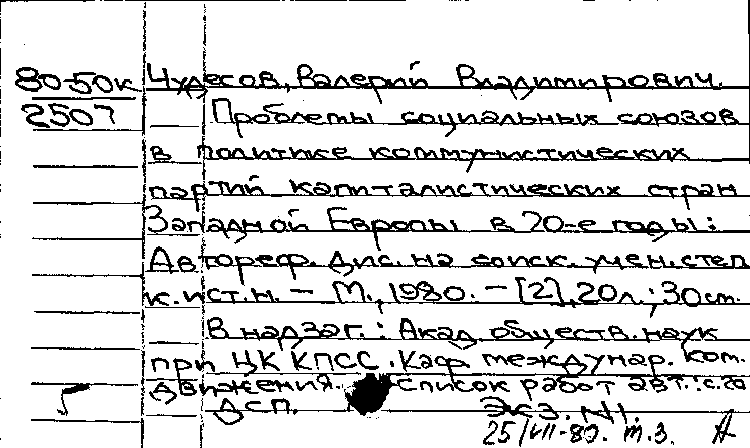 80-50к Чудесов, Валерий Владимирович.
2507 Проблемы социальных союзов
в политике коммунистических
партий капиталистических стран
Западной Европы в 70-е годы:
Автореф. дис. на соиск. учен. степ
к. ист. н. - М., 1980. - [2], 20 л.; 30 см.
В надзаг.: Акад. обществ. наук
при ЦК КПСС. Каф. междунар. ком.
движения. Список работ авт.: с.
ДСП. Экз. N1.
25/VII-80. т.з. А